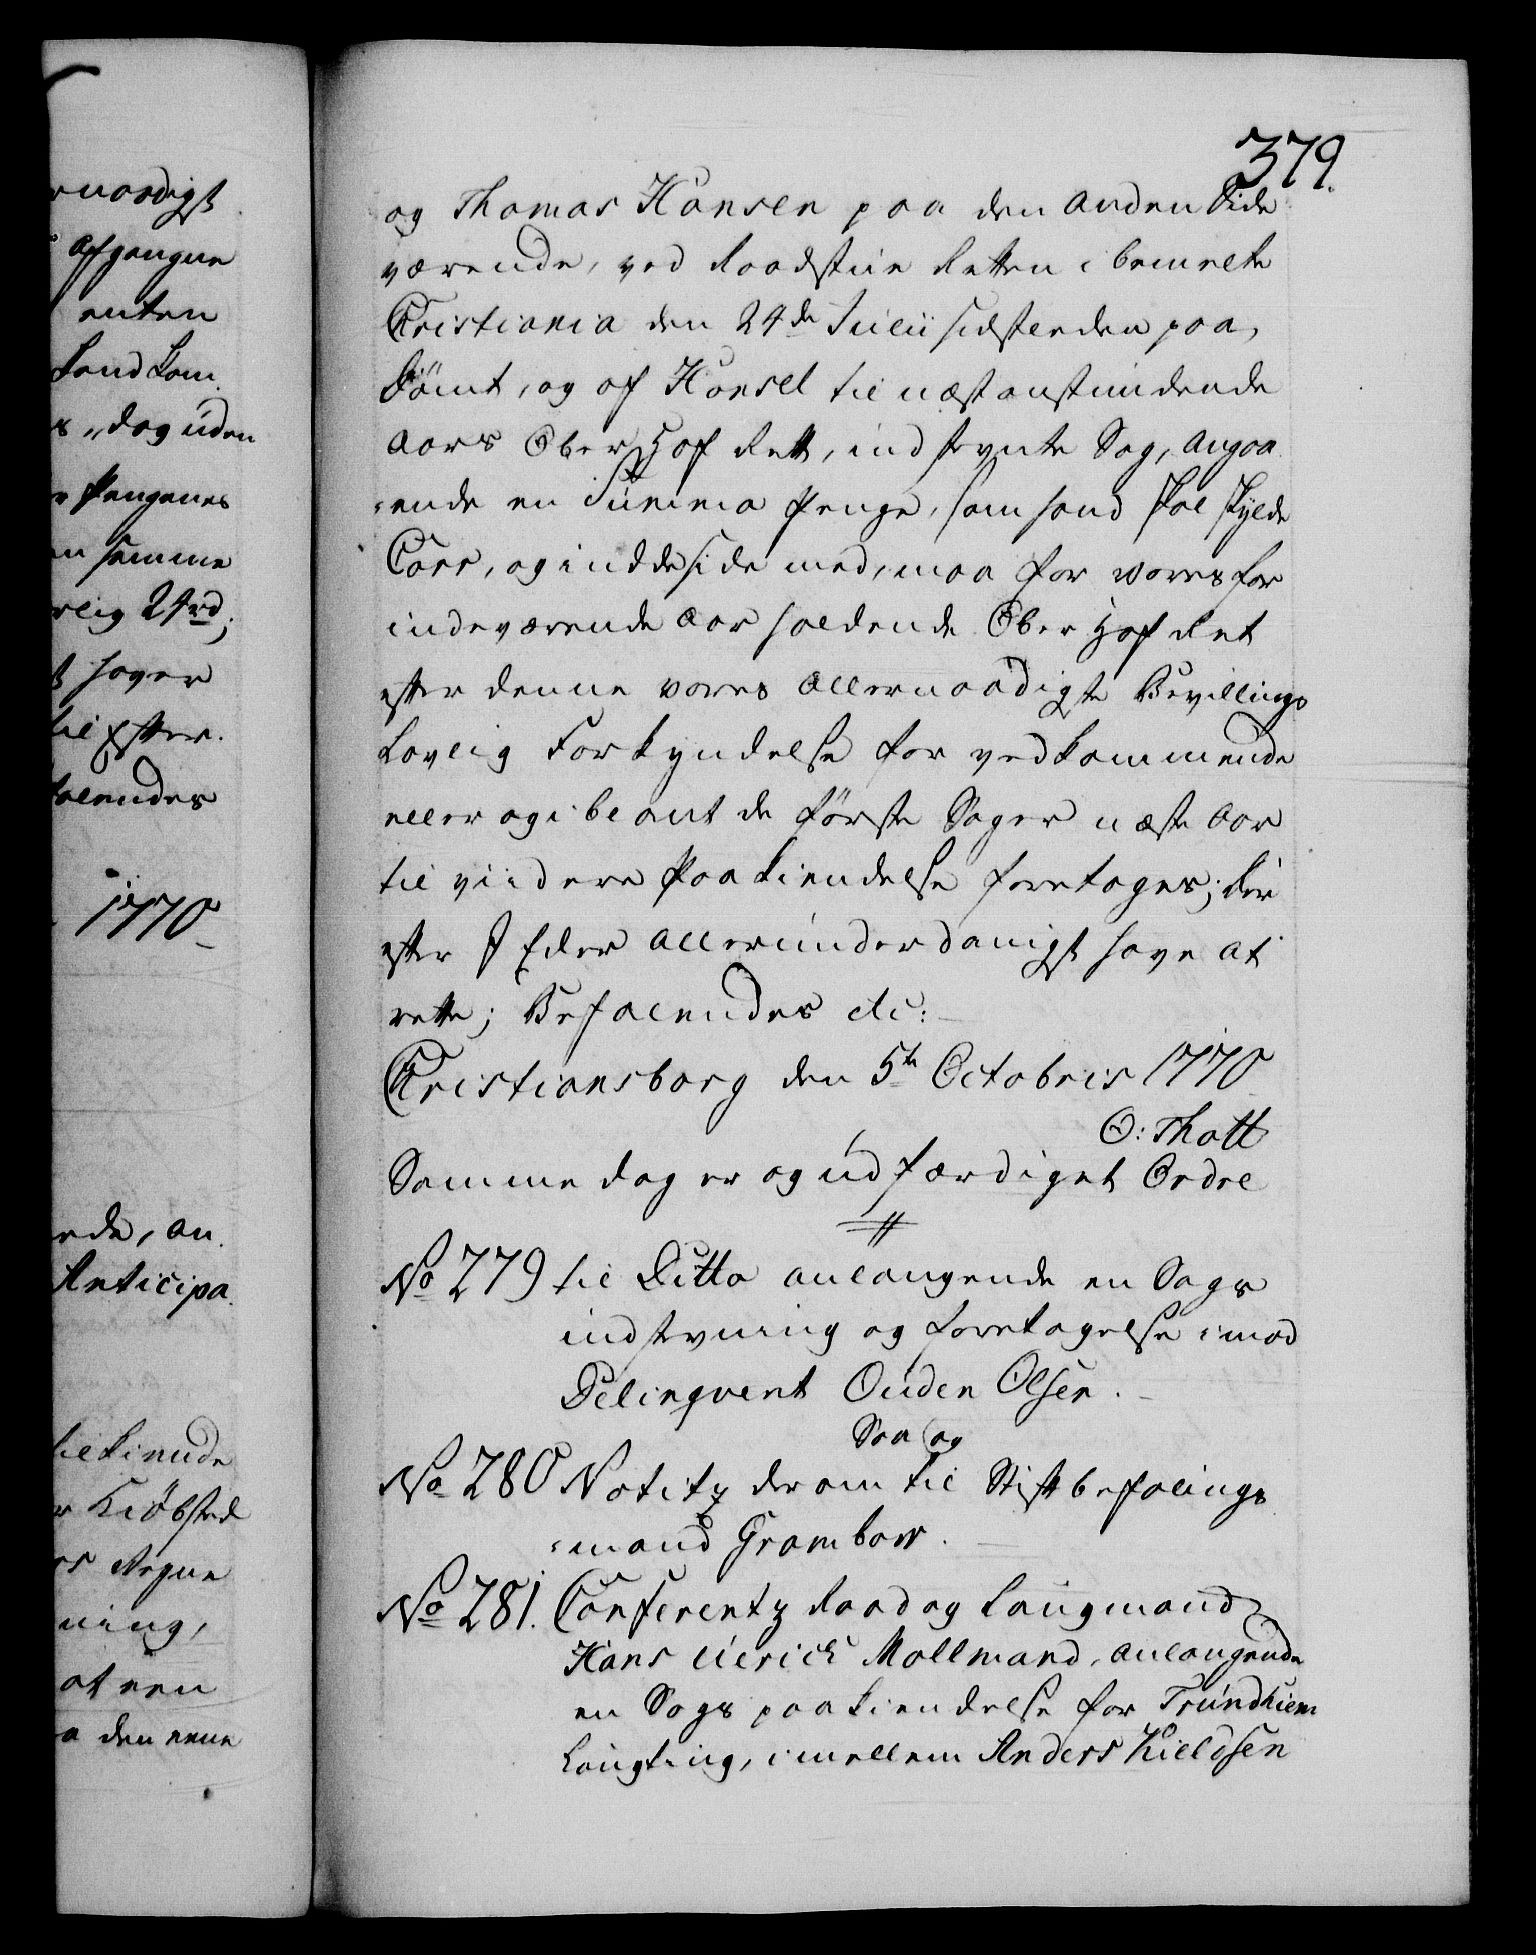 379.
og Thomas Hansen paa den anden Side
værende, ved Raadstue Retten i bemelte
Christiania den 24de Julii sidstleden paa,
dömt, og af Hansel til næstanstundende
Aars Ober Hof Rett, indstevnte Sag, angaa
ende en Summa Penge, som hand skal skylde
Carr, og inddesidde med, maa for vores for
indeværende Aar holdende Ober Hof Ret
efter denne vores allernaadigste Bevillings
lovlig Forkyndelse for vedkommende
eller og iblant de förste Sager næste Aar
til viidere Paakiendelse foretages; der
efter I Eder allerunderdanigst have at
rette; Befalendes etc:
Christiansborg den 5te Octobris 1770
O: Thott
Samme dag er og udfærdiget Ordre
No 279 til Ditto anlangende en Sags
indstevning og foretagelse imod
Delinqvent Ouden Olsen.
Saa og
No 280 Notitz derom til Stiftbefalings
mand Grambow.
No 281. Conferentz Raad og Laugmand
Hans Ulrich Mollmand, anlangende
en Sags paakiendelse for Trundhiem
Laugting, imellem Anders Kieldsen
rnaadigst
Afgangne
enten
s, dag uden
Pengenes
samme
rlig 24rd;
haver
til Efter.
falendes
1770
ede, an.
Anticipa.
tilkiende
Kiöbsted
Regne
ning,
at een
a den eene